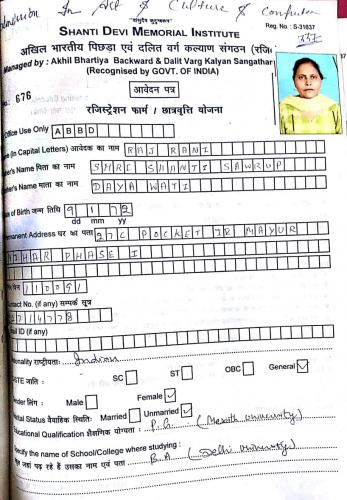 Admission In Art & Culture & Computer
"संयुक्त शुद्धकरण"
Reg. No. : S-31637
SHANTI DEVI MEMORIAL INSTITUTE
अखिल भारतीय पिछड़ा एवं दलित वर्ग कल्याण संगठन (रजि
Managed by : Akhil Bhartiya Backward & Dalit Varg Kalyan Sangathan
(Recognised by GOVT. OF INDIA)
No: 676
आवेदन पत्र
रजिस्ट्रेशन फार्म / छात्रवृत्ति योजना
Office Use Only A B B D
(In Capital Letters) आवेदक का नाम RAJ RANI
's Name पिता का नाम SHRI SHANTI SAWRUP
's Name माता का नाम DAYA WATI
of Birth जन्म तिथि 9 1 72
dd mm yy
Permanent Address घर का पता 27C POCKET IR MAYUR
VIHAR PHASE I
पिन 110091
Contact No. (if any) सम्पर्क सूत्र
2714778
ail ID (if any)
Nationality राष्ट्रीयताः Indian
CASTE जाति : SC ST OBC General ✓
लिंग : Male Female ✓
Marital Status वैवाहिक स्थितिः Married Unmarried ✓
Educational Qualification शैक्षणिक योग्यता : P.G. (Meerut University)
Specify the name of School/College where studying :
जहां पढ़ रहे हैं उसका नाम एवं पता : B.A (Delhi University)